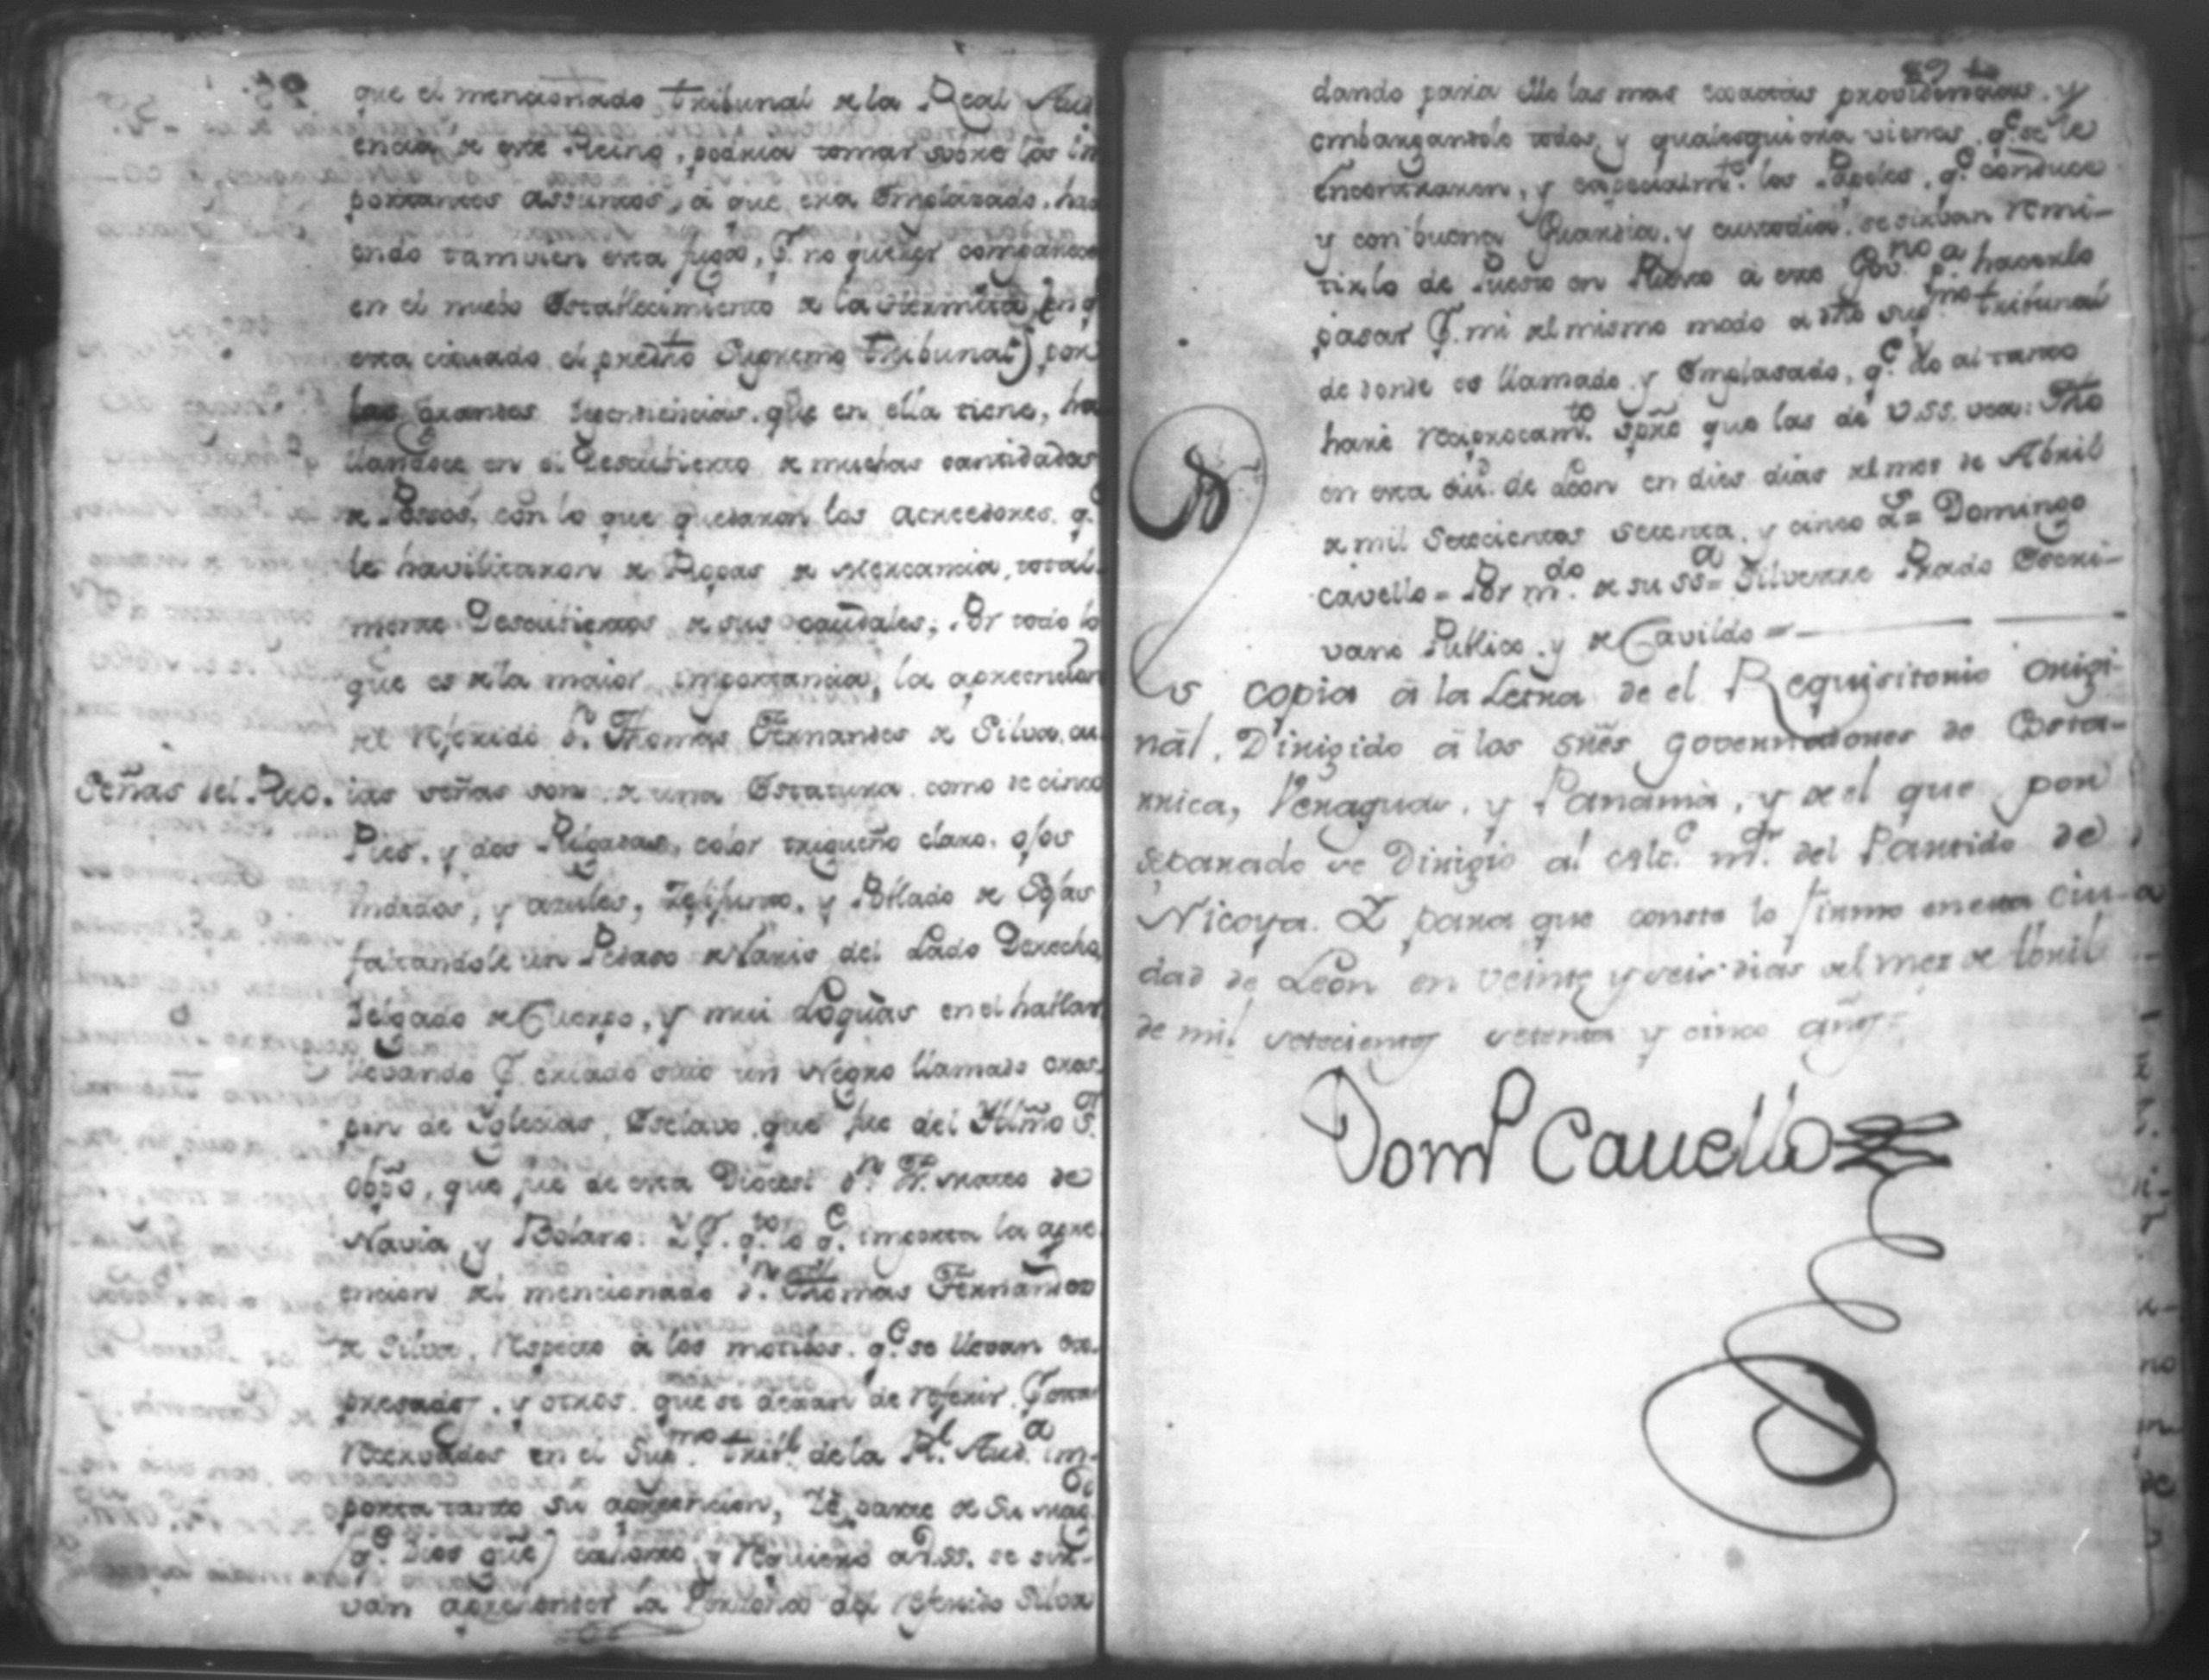 que el mencionado tribunal de la Real Audi
encia de este Reino, podria tomar sovre los im
portantes assuntos, á que era Emplazado, haz
endo tamvien esta fuga, P. no querer comparecer
en el nuebo Establecimiento de la Hermita, (en q
esta cituado el predho Supremo tribunal) por
las grandes dependencias que en ella tiene, ha
llandose en el descubierto de muchas cantidades
de Pessos, con lo que quedaron los acreedores q.e
le havilitaron de Ropas de Mercancia, total
mente Descubiertos de sus caudales; Por todo lo
que es de la maior importancia, la aprencion
del referido D.n Thomas Fernandes de Silva, cu
Señas del Reo. ias señas son de una Estatura como de cinco
Pies, y dos Pulgadas, color trigueño claro, ojos
hundidos, y azules, Zejijunto, y Poblado de Sejas
faltandole un Pedaso de Naris del Lado Derecho,
Delgado de Cuerpo, y mui Loquàs en el hablar
llevando P. criado suio un Negro llamado Cris
pin de Yglesias, Esclavo que fue del Yllmo S.
Obpo, que fue de esta Diocesi D.n Fr. Mateo de
Navia, y Bolaño: Y P. q.to lo q.e importa la apre
encion del mencionado D.n Thomas Fernandes
de Silva, respecto á los motibos q.e se llevan ex
presados, y otros que se dexan de referir P. estar
Reservados en el Sup.mo trib.l de la R.l Aud.a im-
porta tanto su aprencion, De parte de Su Mag.
(q.e Dios gue) exhorto, y Requiero a V.SS. se sir-
van aprehender la Persona del referido Silva
89
dando para ello las mas exactas providencias, y
embargandole todos, y qualesquiera vienes q.e se le
Encontraren, y especialm.te los Papeles, q.e conduce
y con buena Guardia, y custodia, se sirban remi-
tirlo de Puesto en Puesto á este Gov.no p.a hacerlo
pasar P. mi del mismo modo a dho sup.mo tribunal
de donde es llamado y Emplasado, q.e Yo al tanto
haré reciprocam.te spre que las de V.SS. vea: Fho
en esta Ciu.d de Leon en dies dias del mes de Abril
de mil Setecientos setenta, y cinco a.s = Domingo
Cavello = Por m.do de su SS.a = Silvestre Prado Escri-
vano Publico, y de Cavildo =
Es copia á la Letra de el Requisitorio origi-
nál, Dirigido á los sñes governadores de Costa-
rrica, Veragua, y Panamà, y de el que por
separado se Dirigio al Alc.e m.or del Partido de
Nicoya. Y para que conste lo firmo en esta Ciu-
dad de León en veinte y seis dias del mes de Abril
de mil setecientos setenta y cinco años
Dom.o Cauello